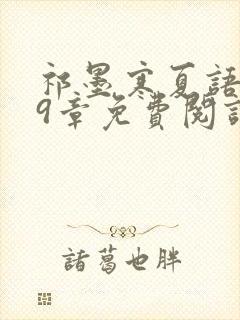 祁墨寒夏語
9章免費閱讀
諸葛也胖